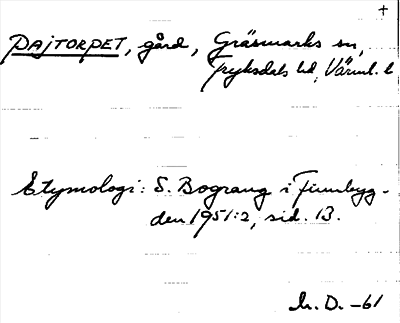 +
PAJTORPET, gård, Gräsmarks sn,
Fryksdals hd, Värml. l
Etymologi: S. Bograng i Finnbyg-
den 1951:2, sid. 13.
h. D. -61